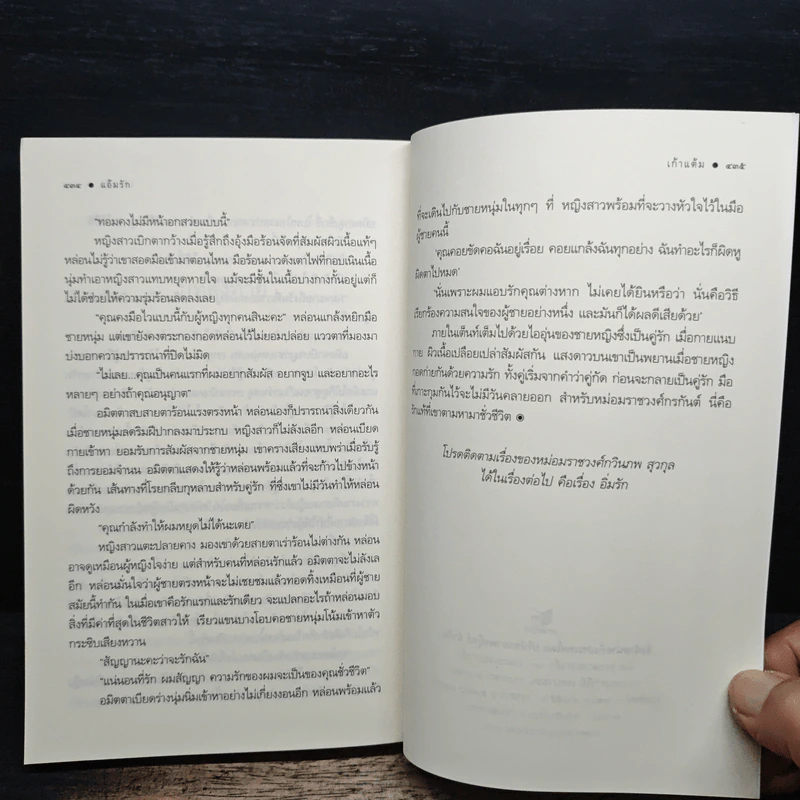 ๔๓๔ ● แอ้มรัก
"ทอมคงไม่มีหน้าอกสวยแบบนี้"
หญิงสาวเบิกตากว้างเมื่อรู้สึกถึงอุ้งมือร้อนจัดที่สัมผัสผิวเนื้อแท้ๆ
หล่อนไม่รู้ว่าเขาสอดมือเข้ามาตอนไหน มือร้อนผ่าวดังเตาไฟที่กอบเนินเนื้อ
นุ่มทำเอาหญิงสาวแทบหยุดหายใจ แม้จะมีชั้นในเนื้อบางกางกั้นอยู่แต่ก็
ไม่ได้ช่วยให้ความรุ่มร้อนลดลงเลย
"คุณคงมือไวแบบนี้กับผู้หญิงทุกคนสินะคะ" หล่อนแกล้งหยิกมือ
ชายหนุ่ม แต่เขายังคงตระกองกอดหล่อนไว้ไม่ยอมปล่อย แววตาที่มองมา
บ่งบอกความปรารถนาที่ปิดไม่มิด
"ไม่เลย...คุณเป็นคนแรกที่ผมอยากสัมผัส อยากจูบ และอยากอะไร
หลายๆ อย่างถ้าคุณอนุญาต"
อมิตตาสบสายตาร้อนแรงตรงหน้า หล่อนเองก็ปรารถนาสิ่งเดียวกัน
เมื่อชายหนุ่มลดริมฝีปากลงมาประกบ หญิงสาวก็ไม่ลังเลอีก หล่อนเบียด
กายเข้าหา ยอมรับการสัมผัสจากชายหนุ่ม เขาครางเสียงแหบพร่าเมื่อรับรู้
ถึงการยอมจำนน อมิตตาแสดงให้รู้ว่าหล่อนพร้อมแล้วที่จะก้าวไปข้างหน้า
ด้วยกัน เส้นทางที่โรยกลีบกุหลาบสำหรับคู่รัก ที่ซึ่งเขาไม่มีวันทำให้หล่อน
ผิดหวัง
"คุณกำลังทำให้ผมหยุดไม่ได้นะเตย"
หญิงสาวแตะปลายคาง มองเขาด้วยสายตาเร่าร้อนไม่ต่างกัน หล่อน
อาจดูเหมือนผู้หญิงใจง่าย แต่สำหรับคนที่หล่อนรักแล้ว อมิตตาจะไม่ลังเล
อีก หล่อนมั่นใจว่าผู้ชายตรงหน้าจะไม่เชยชมแล้วทอดทิ้งเหมือนที่ผู้ชาย
สมัยนี้ทำกัน ในเมื่อเขาคือรักแรกและรักเดียว จะแปลกอะไรถ้าหล่อนมอบ
สิ่งที่มีค่าที่สุดในชีวิตสาวให้ เรียวแขนบางโอบคอชายหนุ่มโน้มเข้าหาตัว
กระซิบเสียงหวาน
"สัญญานะคะว่าจะรักฉัน"
"แน่นอนที่รัก ผมสัญญา ความรักของผมจะเป็นของคุณชั่วชีวิต"
อมิตตาเบียดร่างนุ่มนิ่มเข้าหาอย่างไม่เกี่ยงงอนอีก หล่อนพร้อมแล้ว
เก้าแต้ม ● ๔๓๕
ที่จะเดินไปกับชายหนุ่มในทุกๆ ที่ หญิงสาวพร้อมที่จะวางหัวใจไว้ในมือ
ผู้ชายคนนี้
'คุณคอยขัดคอฉันอยู่เรื่อย คอยแกล้งฉันทุกอย่าง ฉันทำอะไรก็ผิดหู
ผิดตาไปหมด'
'นั่นเพราะผมแอบรักคุณต่างหาก ไม่เคยได้ยินหรือว่า นั่นคือวิธี
เรียกร้องความสนใจของผู้ชายอย่างหนึ่ง และมันก็ได้ผลดีเสียด้วย'
ภายในเต็นท์เต็มไปด้วยไออุ่นของชายหญิงซึ่งเป็นคู่รัก เมื่อกายแนบ
กาย ผิวเนื้อเปลือยเปล่าสัมผัสกัน แสงดาวบนเขาเป็นพยานเมื่อชายหญิง
กอดก่ายกันด้วยความรัก ทั้งคู่เริ่มจากคำว่าคู่กัด ก่อนจะกลายเป็นคู่รัก มือ
ที่เกาะกุมกันไว้จะไม่มีวันคลายออก สำหรับหม่อมราชวงศ์กรกันต์ นี่คือ
รักแท้ที่เขาตามหามาชั่วชีวิต ◉
โปรดติดตามเรื่องของหม่อมราชวงศ์กวินภพ สุวกุล
ได้ในเรื่องต่อไป คือเรื่อง อิ่มรัก